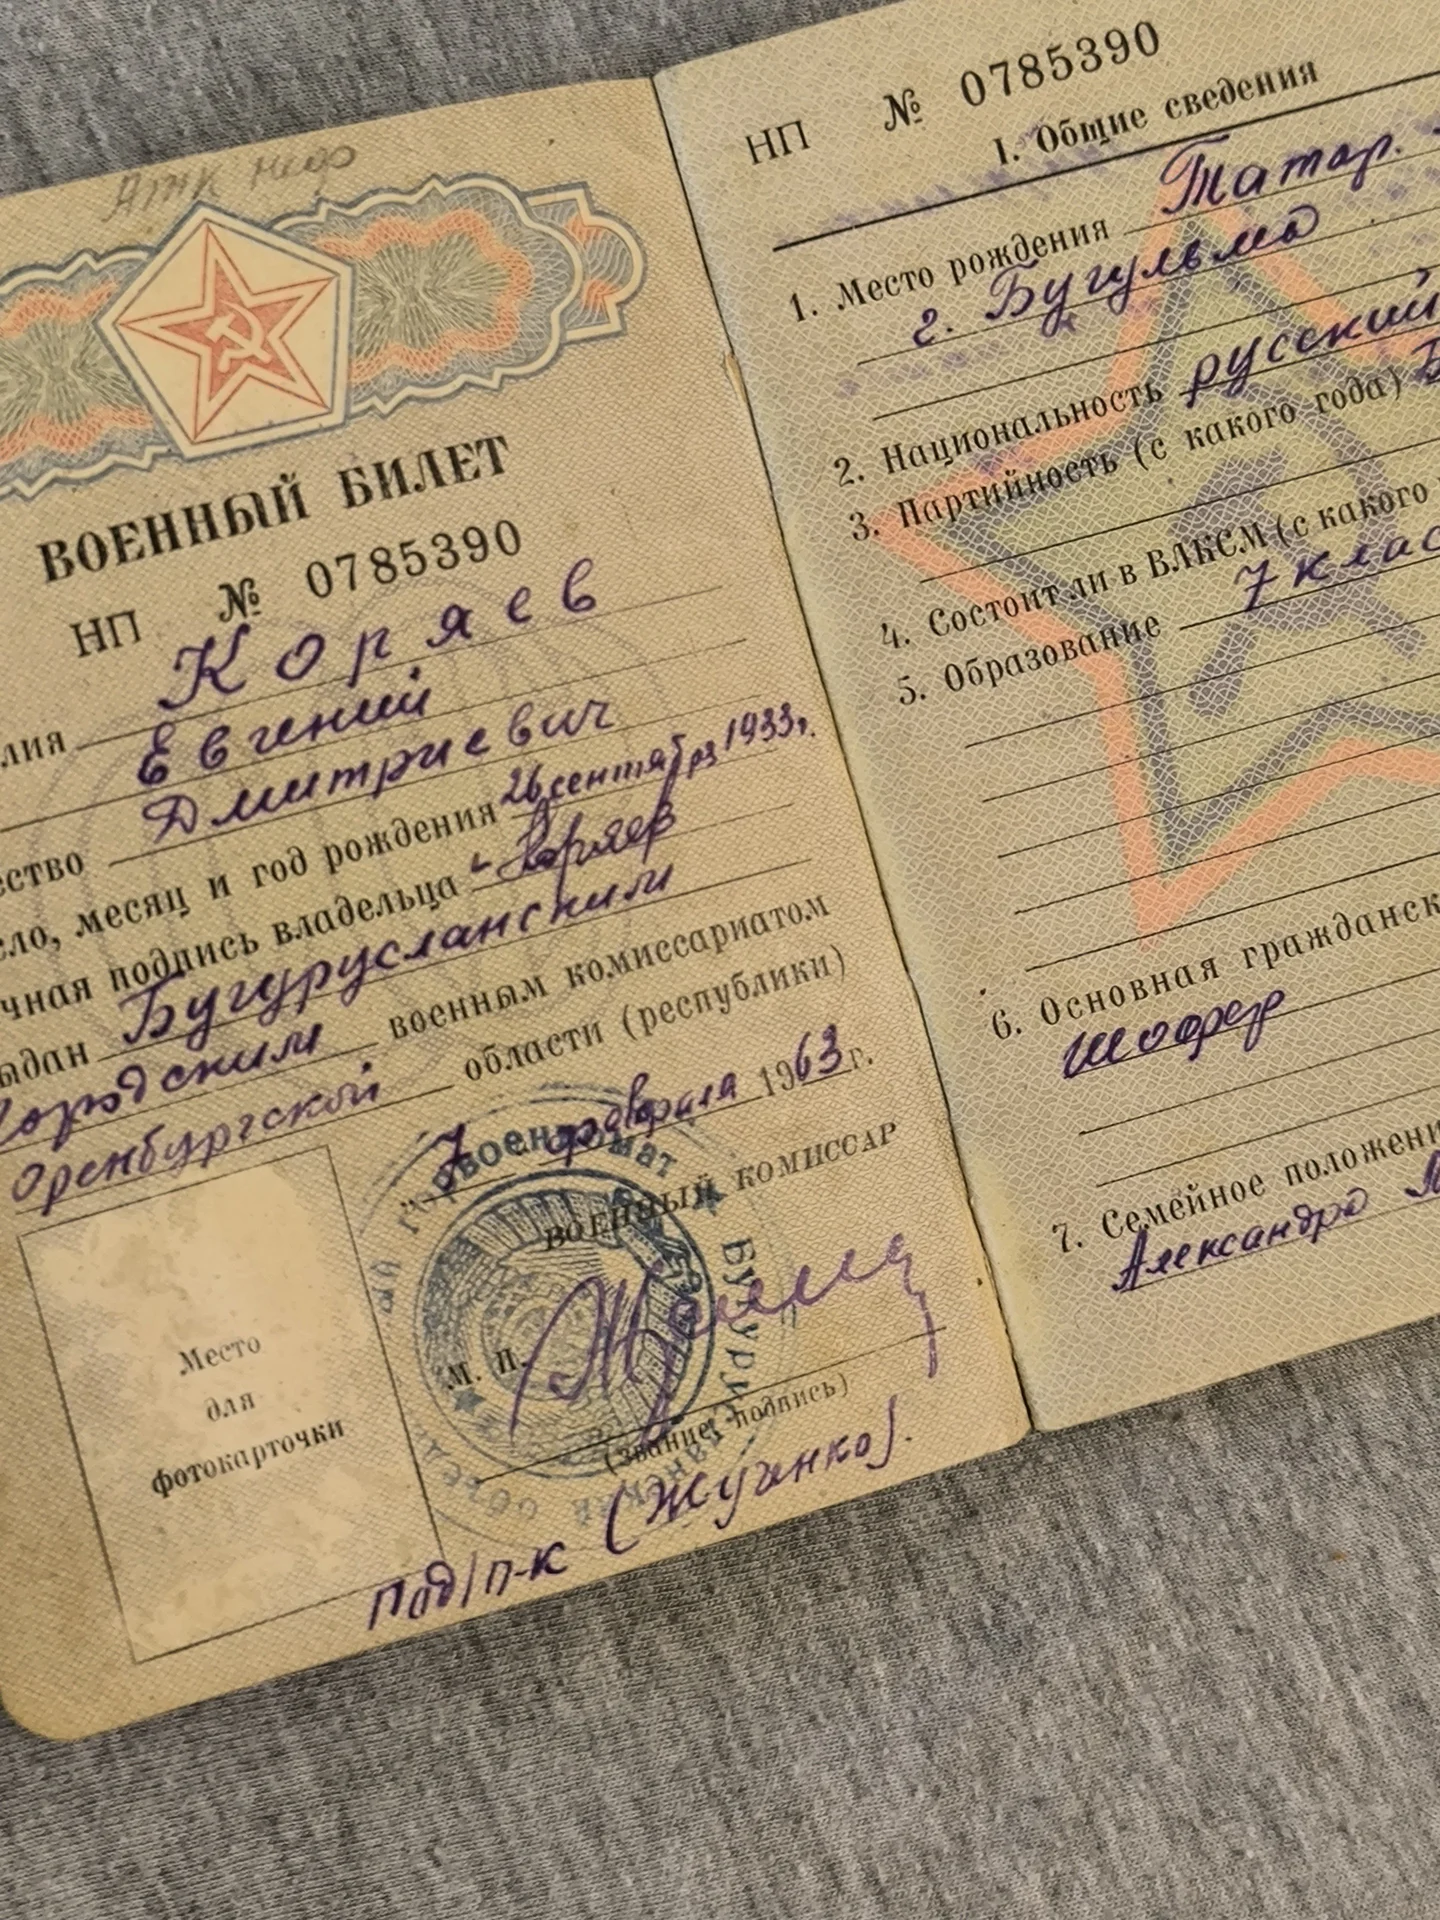 ВОЕННЫЙ БИЛЕТ
НП № 0785390
лия Коряев
Евгений
ество Дмитриевич
ело, месяц и год рождения 26 сентября 1933 г.
чная подпись владельца Коряев
ыдан Бугурусланским
Городским военным комиссариатом
Оренбургской области (республики)
„ 7 февраля 1963 г.
ВОЕННЫЙ КОМИССАР
М. П.
(Звание, подпись)
под/п-к (Жученко).
Место
для
фотокарточки
НП № 0785390
I. Общие сведения
1. Место рождения Татар.
г. Бугульма
2. Национальность русский
3. Партийность (с какого года) Б
4. Состоит ли в ВЛКСМ (с какого
5. Образование 7 клас
6. Основная гражданск
шофер
7. Семейное положени
Александра